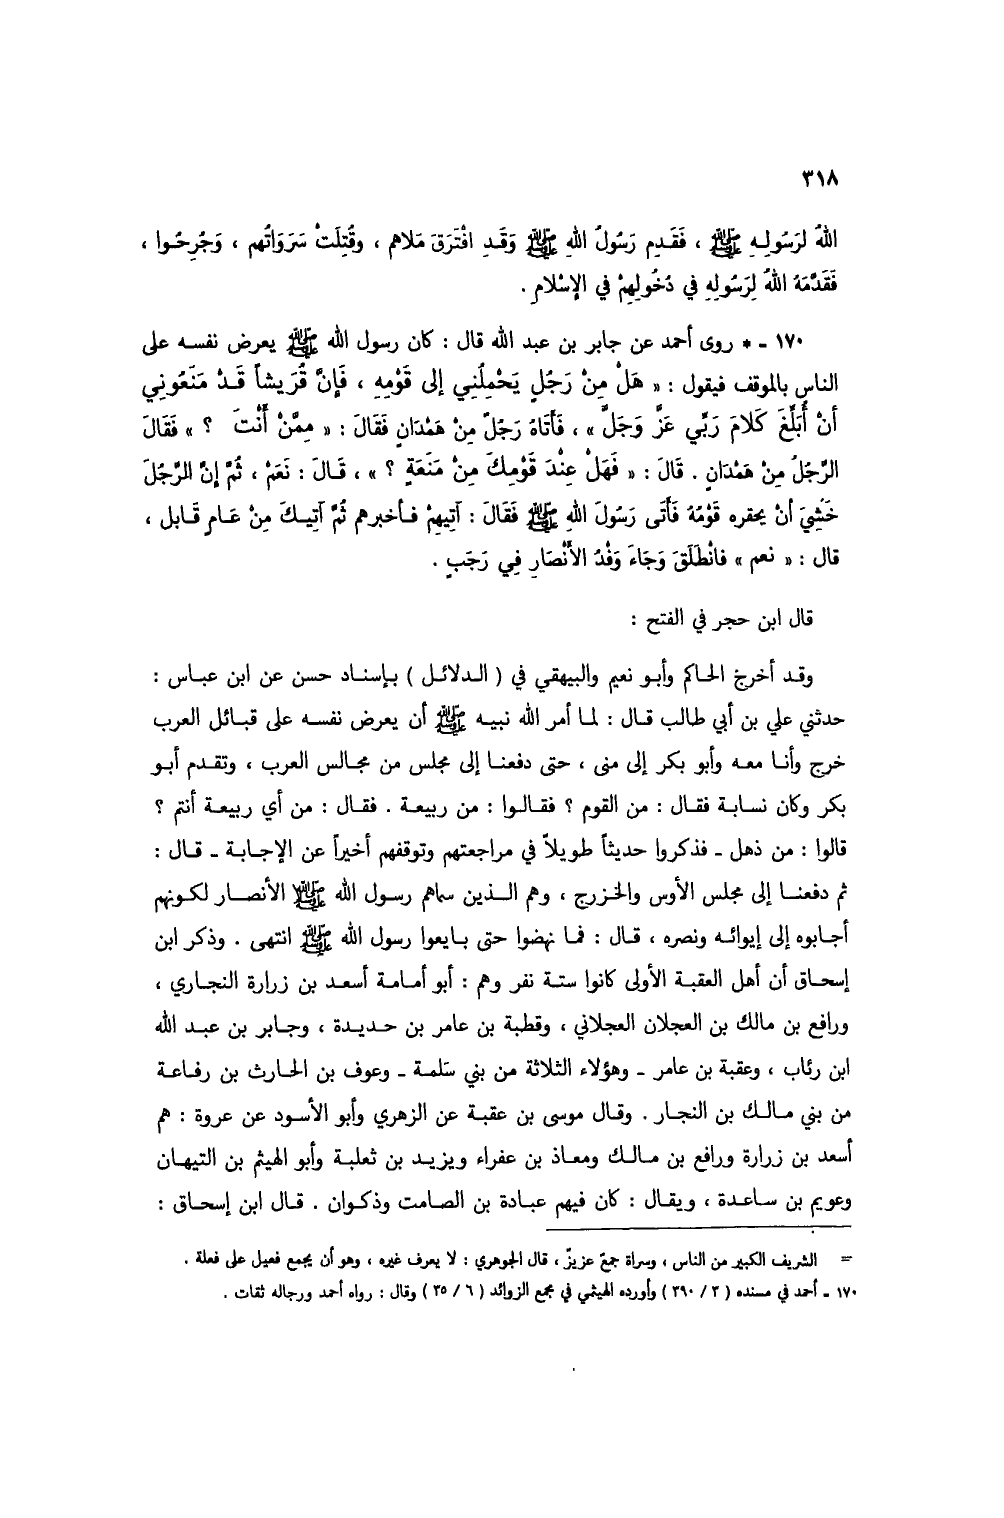 ٣١٨
اللهُ لرَسُولِـهِ ﷺ ، فَقَـدِم رَسُولُ اللهِ ﷺ وَقَـدِ افْتَرَقَ مَلاهم ، وقُتِلَتْ سَرَوَاتُهم ، وَجُرِحُـوا ،
فَقَدَّمَهُ اللهُ لِرَسُولِهِ في دُخُولِهِمْ في الإسْلام .
١٧٠ - * روى أحمد عن جابر بن عبد الله قال : كان رسول الله ﷺ يعرض نفسـه على
الناس بالموقف فيقول : « هَلْ مِنْ رَجُلٍ يَحْمِلُني إلى قَوْمِهِ ، فَإنَّ قُرَيشاً قَـدْ مَنَعُونِي
أنْ أُبَلِّغَ كَلامَ رَبِّي عَزَّ وَجَلَّ » ، فَأتَاهُ رَجُلٌ مِنْ هَمْدَانٍ فَقَالَ : « مِمَّنْ أَنْتَ ؟ » فَقَالَ
الرَّجُلُ مِنْ هَمْدَانٍ . قَالَ : « فَهَلْ عِنْدَ قَوْمِكَ مِنْ مَنَعَةٍ ؟ » ، قَـالَ : نَعَمْ ، ثُمَّ إنَّ الرَّجُلَ
خَشِيَ أنْ يحقره قَوْمُهُ فَأَتَى رَسُولَ اللهِ ﷺ فَقَالَ : آتِيهِمْ فـأخبرهم ثُمَّ آتِيـكَ مِنْ عَـامٍ قَـابل ،
قال : « نعم » فانْطَلَقَ وَجَاءَ وَفْدُ الأَنْصَارِ فِي رَجَبٍ .
قال ابن حجر في الفتح :
وقـد أخرج الحـاكم وأبـو نعيم والبيهقي في ( الـدلائـل ) بـإسنـاد حسن عن ابن عبـاس :
حدثني علي بن أبي طالب قـال : لمـا أمر الله نبيـه ﷺ أن يعرض نفسـه على قبـائل العرب
خرج وأنـا معـه وأبو بكر إلى منى ، حتى دفعنـا إلى مجلس من مجـالس العرب ، وتقـدم أبـو
بكر وكان نسـابـة فقال : من القوم ؟ فقـالـوا : من ربيعـة . فقـال : من أي ربيعـة أنتم ؟
قالوا : من ذهل - فذكروا حديثـاً طويلاً في مراجعتهم وتوقفهم أخيراً عن الإجـابـة - قـال :
ثم دفعنـا إلى مجلس الأوس والخـزرج ، وهم الـذين سماهم رسـول الله ﷺ الأنصـار لكـونهم
أجـابوه إلى إيوائـه ونصره ، قـال : فمـا نهضوا حتى بـايعوا رسول الله ﷺ انتهى . وذكر ابن
إسحـاق أن أهل العقبـة الأولى كانوا ستـة نفر وهم : أبو أمـامـة أسعـد بن زرارة النجـاري ،
ورافع بن مالك بن العجلان العجلاني ، وقطبة بن عامر بن حـديـدة ، وجـابر بن عبـد الله
ابن رئاب ، وعقبة بن عامر - وهؤلاء الثلاثة من بني سَلمـة - وعوف بن الحـارث بن رفـاعـة
من بني مـالـك بن النجـار . وقال موسى بن عقبة عن الزهري وأبو الأسـود عن عروة : هم
أسعد بن زرارة ورافع بن مـالـك ومعـاذ بن عفراء ويزيـد بن ثعلبـة وأبو الهيثم بن التيهـان
وعويم بن ساعـدة ، ويقـال : كان فيهم عبـادة بن الصـامت وذكـوان . قـال ابن إسحـاق :
= الشريف الكبير من الناس ، وسراة جمعٌ عزيزٌ ، قال الجوهري : لا يعرف غيره ، وهو أن يجمع فعيل على فعلة .
١٧٠ - أحمد في مسنده ( ٣ / ٣٩٠ ) وأورده الهيثمي في مجمع الزوائد ( ٦ / ٣٥ ) وقال : رواه أحمد ورجاله ثقات .